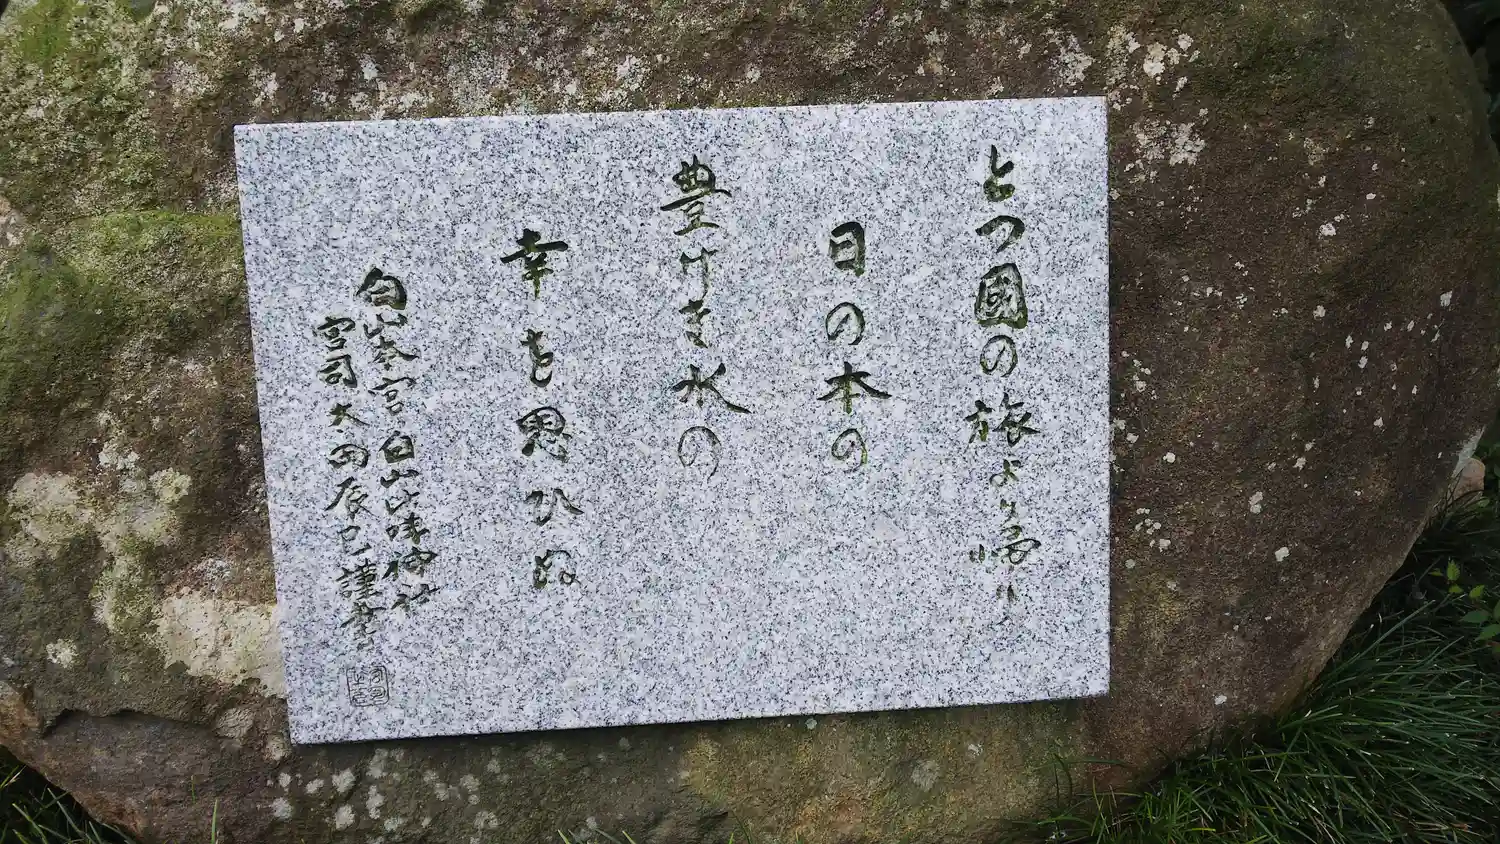 とつ國の旅より帰り
日の本の
豊けき水の
幸を思ひぬ
白山本宮白山比咩神社
宮司太田辰巳謹書